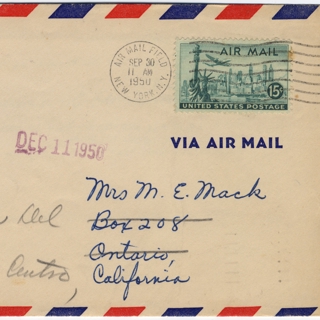 AIR MAIL FIELD
SEP 30
11 AM
1950
NEW YORK, N.Y.
AIR MAIL
15¢
UNITED STATES POSTAGE
DEC 11 1950
VIA AIR MAIL
Mrs M. E. Mack
Box 208
Ontario,
California
Del
Centro,